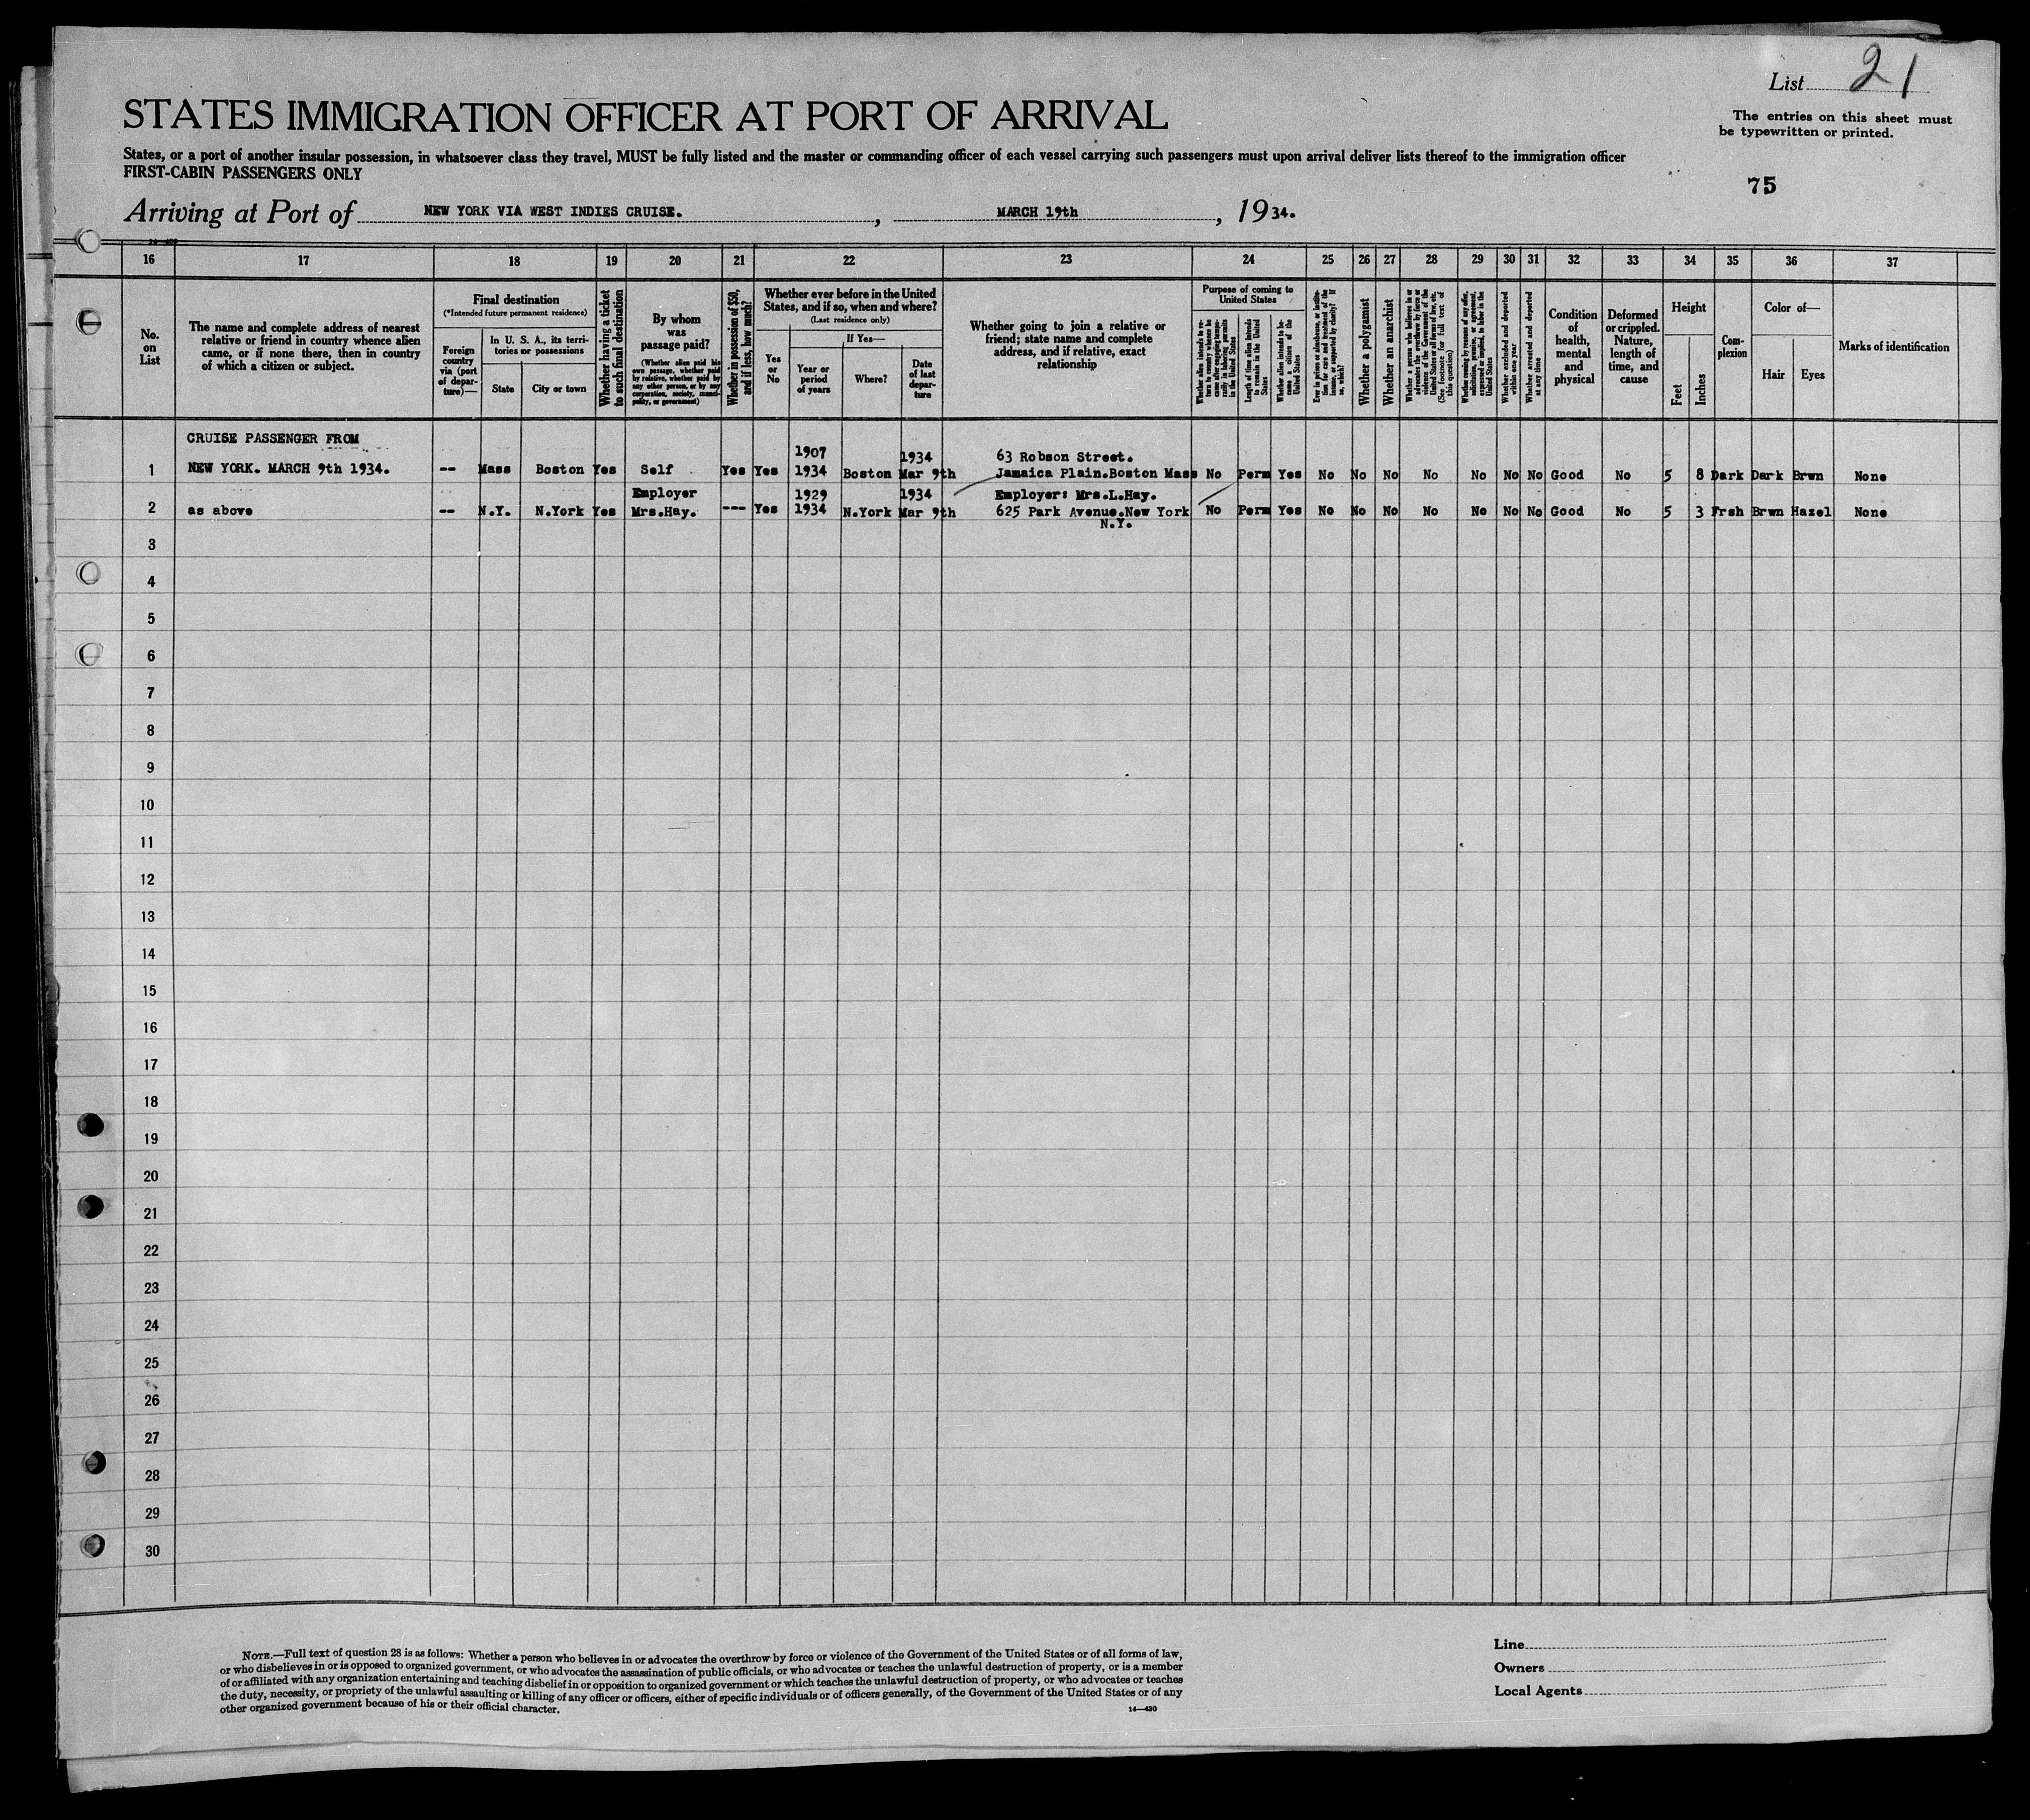 List 21
STATES IMMIGRATION OFFICER AT PORT OF ARRIVAL
The entries on this sheet must
be typewritten or printed.
States, or a port of another insular possession, in whatsoever class they travel, MUST be fully listed and the master or commanding officer of each vessel carrying such passengers must upon arrival deliver lists thereof to the immigration officer
FIRST-CABIN PASSENGERS ONLY
75
Arriving at Port of NEW YORK VIA WEST INDIES CRUISE. , MARCH 19th , 1934.
16 17 18 19 20 21 22 23 24 25 26 27 28 29 30 31 32 33 34 35 36 37
No.
on
List
The name and complete address of nearest
relative or friend in country whence alien
came, or if none there, then in country
of which a citizen or subject.
Final destination
(*Intended future permanent residence)
Foreign
country
via (port
of depar-
ture)—
In U. S. A., its terri-
tories or possessions
State
City or town
Whether having a ticket
to such final destination
By whom
was
passage paid?
(Whether alien paid his
own passage, whether paid
by relative, whether paid by
any other person, or by any
corporation, society, munici-
pality, or government)
Whether in possession of $50,
and if less, how much?
Whether ever before in the United
States, and if so, when and where?
(Last residence only)
Yes
or
No
If Yes—
Year or
period
of years
Where?
Date
of last
depar-
ture
Whether going to join a relative or
friend; state name and complete
address, and if relative, exact
relationship
Purpose of coming to
United States
Whether alien intends to re-
turn to country whence he
came after engaging tempo-
rarily in laboring pursuits
in the United States
Length of time alien intends
to remain in the United
States
Whether alien intends to be-
come a citizen of the
United States
Ever in prison or almshouse, or institu-
tion for care and treatment of the
insane, or supported by charity? If
so, which?
Whether a polygamist
Whether an anarchist
Whether a person who believes in or
advocates the overthrow by force or
violence of the Government of the
United States or all forms of law, etc.
(See footnote for full text of
this question)
Whether coming by reason of any offer,
solicitation, promise, or agreement,
expressed or implied, to labor in the
United States
Whether excluded and deported
within one year
Whether arrested and deported
at any time
Condition
of
health,
mental
and
physical
Deformed
or crippled.
Nature,
length of
time, and
cause
Height
Feet
Inches
Com-
plexion
Color of—
Hair
Eyes
Marks of identification
CRUISE PASSENGER FROM
1907 1934 63 Robson Street.
1 NEW YORK. MARCH 9th 1934. -- Mass Boston Yes Self Yes Yes 1934 Boston Mar 9th Jamaica Plain.Boston Mass No Perm Yes No No No No No No No Good No 5 8 Dark Dark Brwn None
Employer 1929 1934 Employer: Mrs.L.Hay.
2 as above -- N.Y. N.York Yes Mrs.Hay. --- Yes 1934 N.York Mar 9th 625 Park Avenue.New York No Perm Yes No No No No No No No Good No 5 3 Frsh Brwn Hazel None
N.Y.
3
4
5
6
7
8
9
10
11
12
13
14
15
16
17
18
19
20
21
22
23
24
25
26
27
28
29
30
NOTE.—Full text of question 28 is as follows: Whether a person who believes in or advocates the overthrow by force or violence of the Government of the United States or of all forms of law,
or who disbelieves in or is opposed to organized government, or who advocates the assassination of public officials, or who advocates or teaches the unlawful destruction of property, or is a member
of or affiliated with any organization entertaining and teaching disbelief in or opposition to organized government or which teaches the unlawful destruction of property, or who advocates or teaches
the duty, necessity, or propriety of the unlawful assaulting or killing of any officer or officers, either of specific individuals or of officers generally, of the Government of the United States or of any
other organized government because of his or their official character.
14—430
Line
Owners
Local Agents